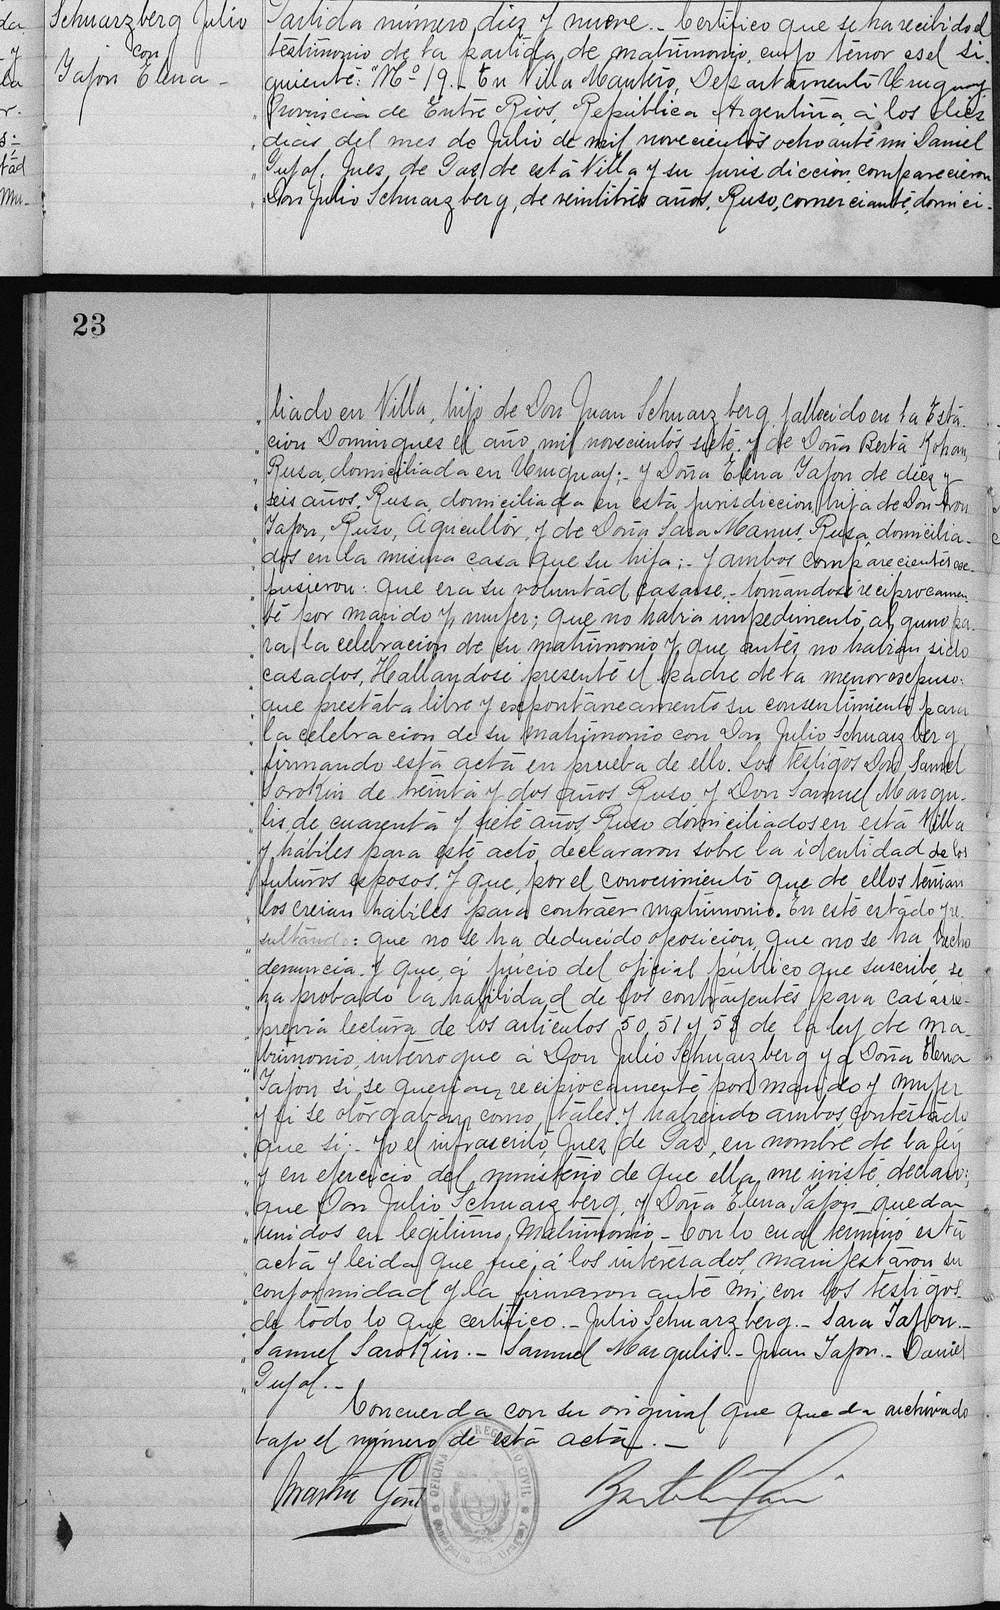 Schwarzberg Julio
con
Tafon Elena -
Partida número diez y nueve.- Certifico que se ha recibido el
testimonio de la partida de matrimonio, cuyo tenor es el si-
guiente: "Nº 19.- En Villa Mantero, Departamento Uruguay
Provincia de Entre Rios, República Argentina, á los diez
dias del mes de Julio de mil novecientos ocho ante mi Daniel
Juez de Paz de esta Villa y su jurisdiccion, comparecieron
Don Julio Schwarzberg, de veintitrés años, Ruso, comerciante, domici-
23
liado en Villa, hijo de Don Juan Schwarzberg, fallecido en la Esta-
cion Domingues el año mil novecientos siete, y de Doña Berta Kohan,
Rusa, domiciliada en Uruguay;- y Doña Elena Tafon de diez y
seis años, Rusa, domiciliada en esta jurisdiccion, hija de Don Aron
Tafon, Ruso, Agricultor, y de Doña Sara Manus, Rusa, domicilia-
dos en la misma casa que su hija;- y ambos comparecientes ex-
pusieron: que era su voluntad casarse,- tomandose reciprocamen-
te por marido y mujer; que no habia impedimento alguno pa-
ra la celebracion de su matrimonio y que antes no habian sido
casados, Hallandose presente el padre de la menor expuso:
que prestaba libre y espontáneamente su consentimiento para
la celebracion de su matrimonio con Don Julio Schwarzberg
firmando esta acta en prueba de ello. Los testigos Don Samuel
Sorokin de treinta y dos años Ruso y Don Samuel Margu-
lis, de cuarenta y siete años, Ruso domiciliados en esta Villa
y hábiles para este acto, declararon sobre la identidad de los
futuros esposos. Y que, por el conocimiento que de ellos tenian
los creian habiles para contraer matrimonio. En este estado y re-
sultando: que no se ha deducido oposicion, que no se ha hecho
denuncia. Y que, á juicio del oficial público que suscribe, se
ha probado la habilidad de los contrayentes para casarse-
prévia lectura de los artículos 50, 51 y 53 de la ley de ma-
trimonio, interroque á Don Julio Schwarzberg y a Doña Elena
Tafon si se querian reciprocamente por marido y mujer
y si se otorgaban como tales. y habiendo ambos contestado
que si;- yo el infrascrito, Juez de Paz, en nombre de la ley
y en ejercicio del ministerio de que ella me iviste, declaro:
que Don Julio Schwarzberg, y Doña Elena Tafon quedan
unidos en legitimo Matrimonio - Con lo cual terminó esta
acta y leida que fué á los interesados, manifestaron su
conformidad y la firmaron ante mi, con los testigos
de todo lo que certifico.- Julio Schwarzberg.- Sara Tafon.-
Samuel Sarokin.- Samuel Margulis.- Juan Tafon.- Daniel
Concuerda con su original que queda archivado
bajo el número de esta acta.-
Martin